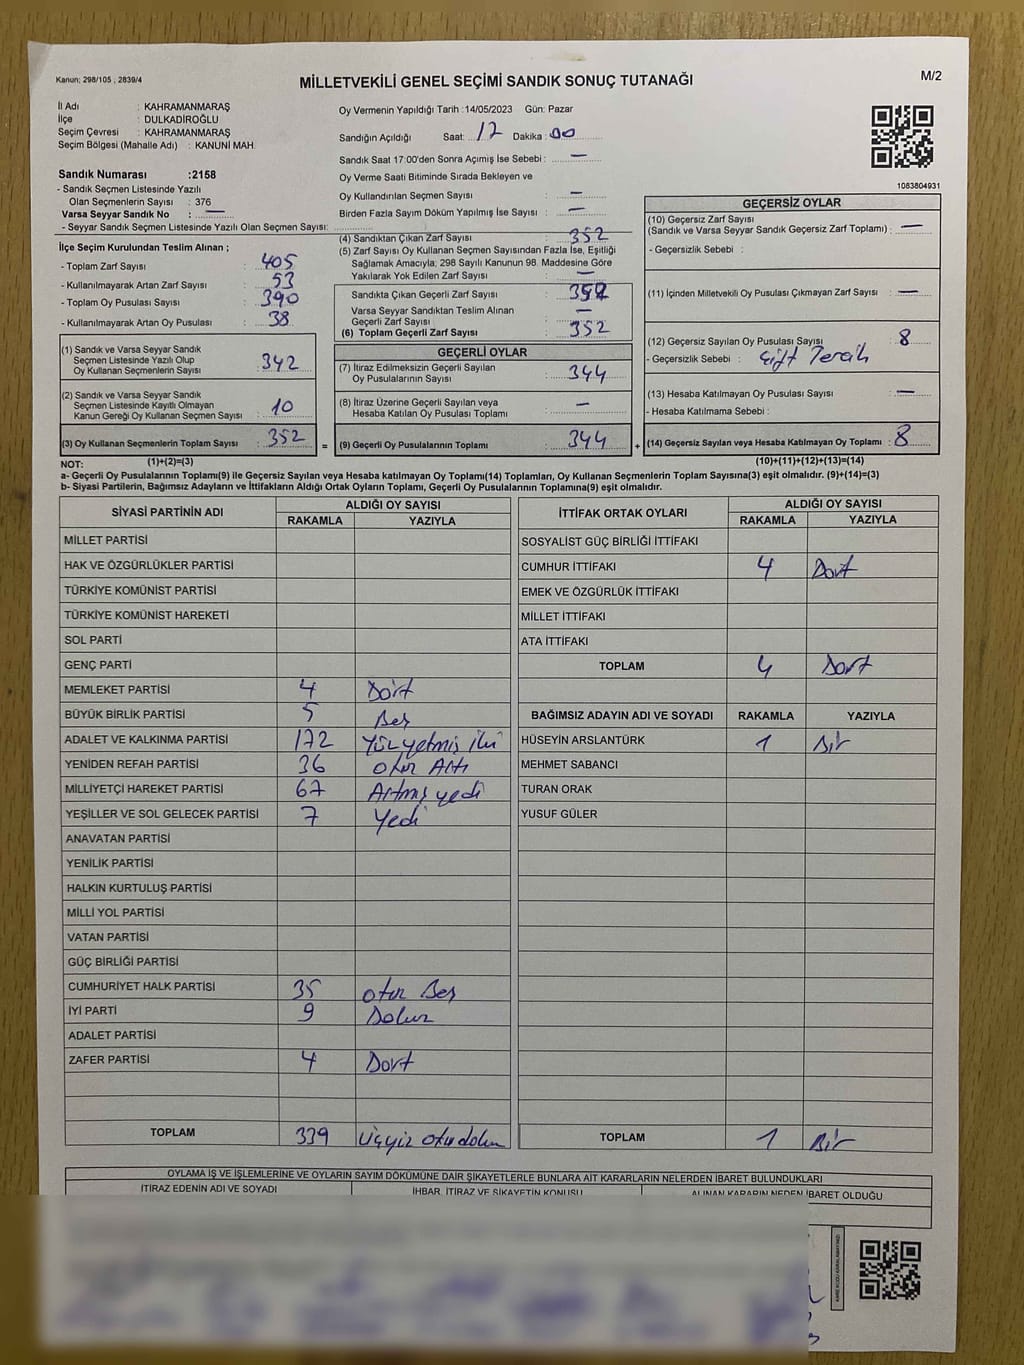 Kanun; 298/105 ; 2839/4
MİLLETVEKİLİ GENEL SEÇİMİ SANDIK SONUÇ TUTANAĞI
M/2
İl Adı : KAHRAMANMARAŞ
İlçe : DULKADİROĞLU
Seçim Çevresi : KAHRAMANMARAŞ
Seçim Bölgesi (Mahalle Adı) : KANUNİ MAH.
Sandık Numarası :2158
- Sandık Seçmen Listesinde Yazılı
Olan Seçmenlerin Sayısı : 376
Varsa Seyyar Sandık No : —
- Seyyar Sandık Seçmen Listesinde Yazılı Olan Seçmen Sayısı:
Oy Vermenin Yapıldığı Tarih :14/05/2023 Gün: Pazar
Sandığın Açıldığı Saat: 17 Dakika : 00
Sandık Saat 17:00'den Sonra Açımış İse Sebebi : —
Oy Verme Saati Bitiminde Sırada Bekleyen ve
Oy Kullandırılan Seçmen Sayısı : —
Birden Fazla Sayım Döküm Yapılmış İse Sayısı : —
1083804931
İlçe Seçim Kurulundan Teslim Alınan ;
- Toplam Zarf Sayısı : 405
- Kullanılmayarak Artan Zarf Sayısı : 53
- Toplam Oy Pusulası Sayısı : 390
- Kullanılmayarak Artan Oy Pusulası : 38
(1) Sandık ve Varsa Seyyar Sandık
Seçmen Listesinde Yazılı Olup
Oy Kullanan Seçmenlerin Sayısı : 342
(2) Sandık ve Varsa Seyyar Sandık
Seçmen Listesinde Kayıtlı Olmayan
Kanun Gereği Oy Kullanan Seçmen Sayısı : 10
(3) Oy Kullanan Seçmenlerin Toplam Sayısı : 352 =
(4) Sandıktan Çıkan Zarf Sayısı : 352
(5) Zarf Sayısı Oy Kullanan Seçmen Sayısından Fazla İse, Eşitliği
Sağlamak Amacıyla, 298 Sayılı Kanunun 98. Maddesine Göre
Yakılarak Yok Edilen Zarf Sayısı : —
Sandıkta Çıkan Geçerli Zarf Sayısı : 352
Varsa Seyyar Sandıktan Teslim Alınan
Geçerli Zarf Sayısı : —
(6) Toplam Geçerli Zarf Sayısı : 352
GEÇERLİ OYLAR
(7) İtiraz Edilmeksizin Geçerli Sayılan
Oy Pusulalarının Sayısı : 344
(8) İtiraz Üzerine Geçerli Sayılan veya
Hesaba Katılan Oy Pusulası Toplamı : —
(9) Geçerli Oy Pusulalarının Toplamı : 344 +
GEÇERSİZ OYLAR
(10) Geçersiz Zarf Sayısı
(Sandık ve Varsa Seyyar Sandık Geçersiz Zarf Toplamı) : —
- Geçersizlik Sebebi :
(11) İçinden Milletvekili Oy Pusulası Çıkmayan Zarf Sayısı : —
(12) Geçersiz Sayılan Oy Pusulası Sayısı : 8
- Geçersizlik Sebebi : Çift Tercih
(13) Hesaba Katılmayan Oy Pusulası Sayısı : —
- Hesaba Katılmama Sebebi :
(14) Geçersiz Sayılan veya Hesaba Katılmayan Oy Toplamı : 8
NOT: (1)+(2)=(3) (10)+(11)+(12)+(13)=(14)
a- Geçerli Oy Pusulalarının Toplamı(9) ile Geçersiz Sayılan veya Hesaba katılmayan Oy Toplamı(14) Toplamları, Oy Kullanan Seçmenlerin Toplam Sayısına(3) eşit olmalıdır. (9)+(14)=(3)
b- Siyasi Partilerin, Bağımsız Adayların ve İttifakların Aldığı Ortak Oyların Toplamı, Geçerli Oy Pusulalarının Toplamına(9) eşit olmalıdır.
SİYASİ PARTİNİN ADI ALDIĞI OY SAYISI
RAKAMLA YAZIYLA
MİLLET PARTİSİ
HAK VE ÖZGÜRLÜKLER PARTİSİ
TÜRKİYE KOMÜNİST PARTİSİ
TÜRKİYE KOMÜNİST HAREKETİ
SOL PARTİ
GENÇ PARTİ
MEMLEKET PARTİSİ 4 Dört
BÜYÜK BİRLİK PARTİSİ 5 Beş
ADALET VE KALKINMA PARTİSİ 172 Yüz yetmiş iki
YENİDEN REFAH PARTİSİ 36 otuz Altı
MİLLİYETÇİ HAREKET PARTİSİ 67 Atmış yedi
YEŞİLLER VE SOL GELECEK PARTİSİ 7 Yedi
ANAVATAN PARTİSİ
YENİLİK PARTİSİ
HALKIN KURTULUŞ PARTİSİ
MİLLİ YOL PARTİSİ
VATAN PARTİSİ
GÜÇ BİRLİĞİ PARTİSİ
CUMHURİYET HALK PARTİSİ 35 otuz Beş
İYİ PARTİ 9 Dokuz
ADALET PARTİSİ
ZAFER PARTİSİ 4 Dört
TOPLAM 339 Üçyüz otuzdokuz
İTTİFAK ORTAK OYLARI ALDIĞI OY SAYISI
RAKAMLA YAZIYLA
SOSYALİST GÜÇ BİRLİĞİ İTTİFAKI
CUMHUR İTTİFAKI 4 Dört
EMEK VE ÖZGÜRLÜK İTTİFAKI
MİLLET İTTİFAKI
ATA İTTİFAKI
TOPLAM 4 Dört
BAĞIMSIZ ADAYIN ADI VE SOYADI RAKAMLA YAZIYLA
HÜSEYİN ARSLANTÜRK 1 Bir
MEHMET SABANCI
TURAN ORAK
YUSUF GÜLER
TOPLAM 1 Bir
OYLAMA İŞ VE İŞLEMLERİNE VE OYLARIN SAYIM DÖKÜMÜNE DAİR ŞİKAYETLERLE BUNLARA AİT KARARLARIN NELERDEN İBARET BULUNDUKLARI
İTİRAZ EDENİN ADI VE SOYADI İHBAR, İTİRAZ VE ŞİKAYETİN KONUSU ALINAN KARARIN NEDEN İBARET OLDUĞU